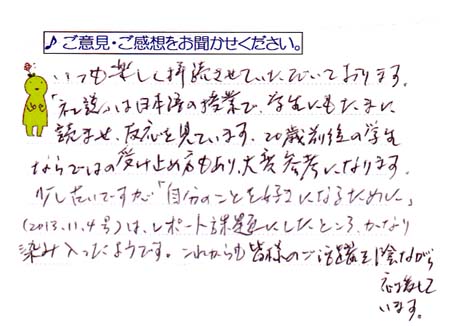 ♪ご意見・ご感想をお聞かせください。
いつも楽しく拝読させていただいております。
「社説」は日本語の授業で、学生にもたまに
読ませ、反応を見ています。20歳前後の学生
ならではの受け止め方もあり、大変参考になります。
少し古いですが「自分のことを好きになるために」
(2013.11.4号)は、レポート課題にしたところ、かなり
染み入ったようです。これからも皆様のご活躍を陰ながら
応援して
います。